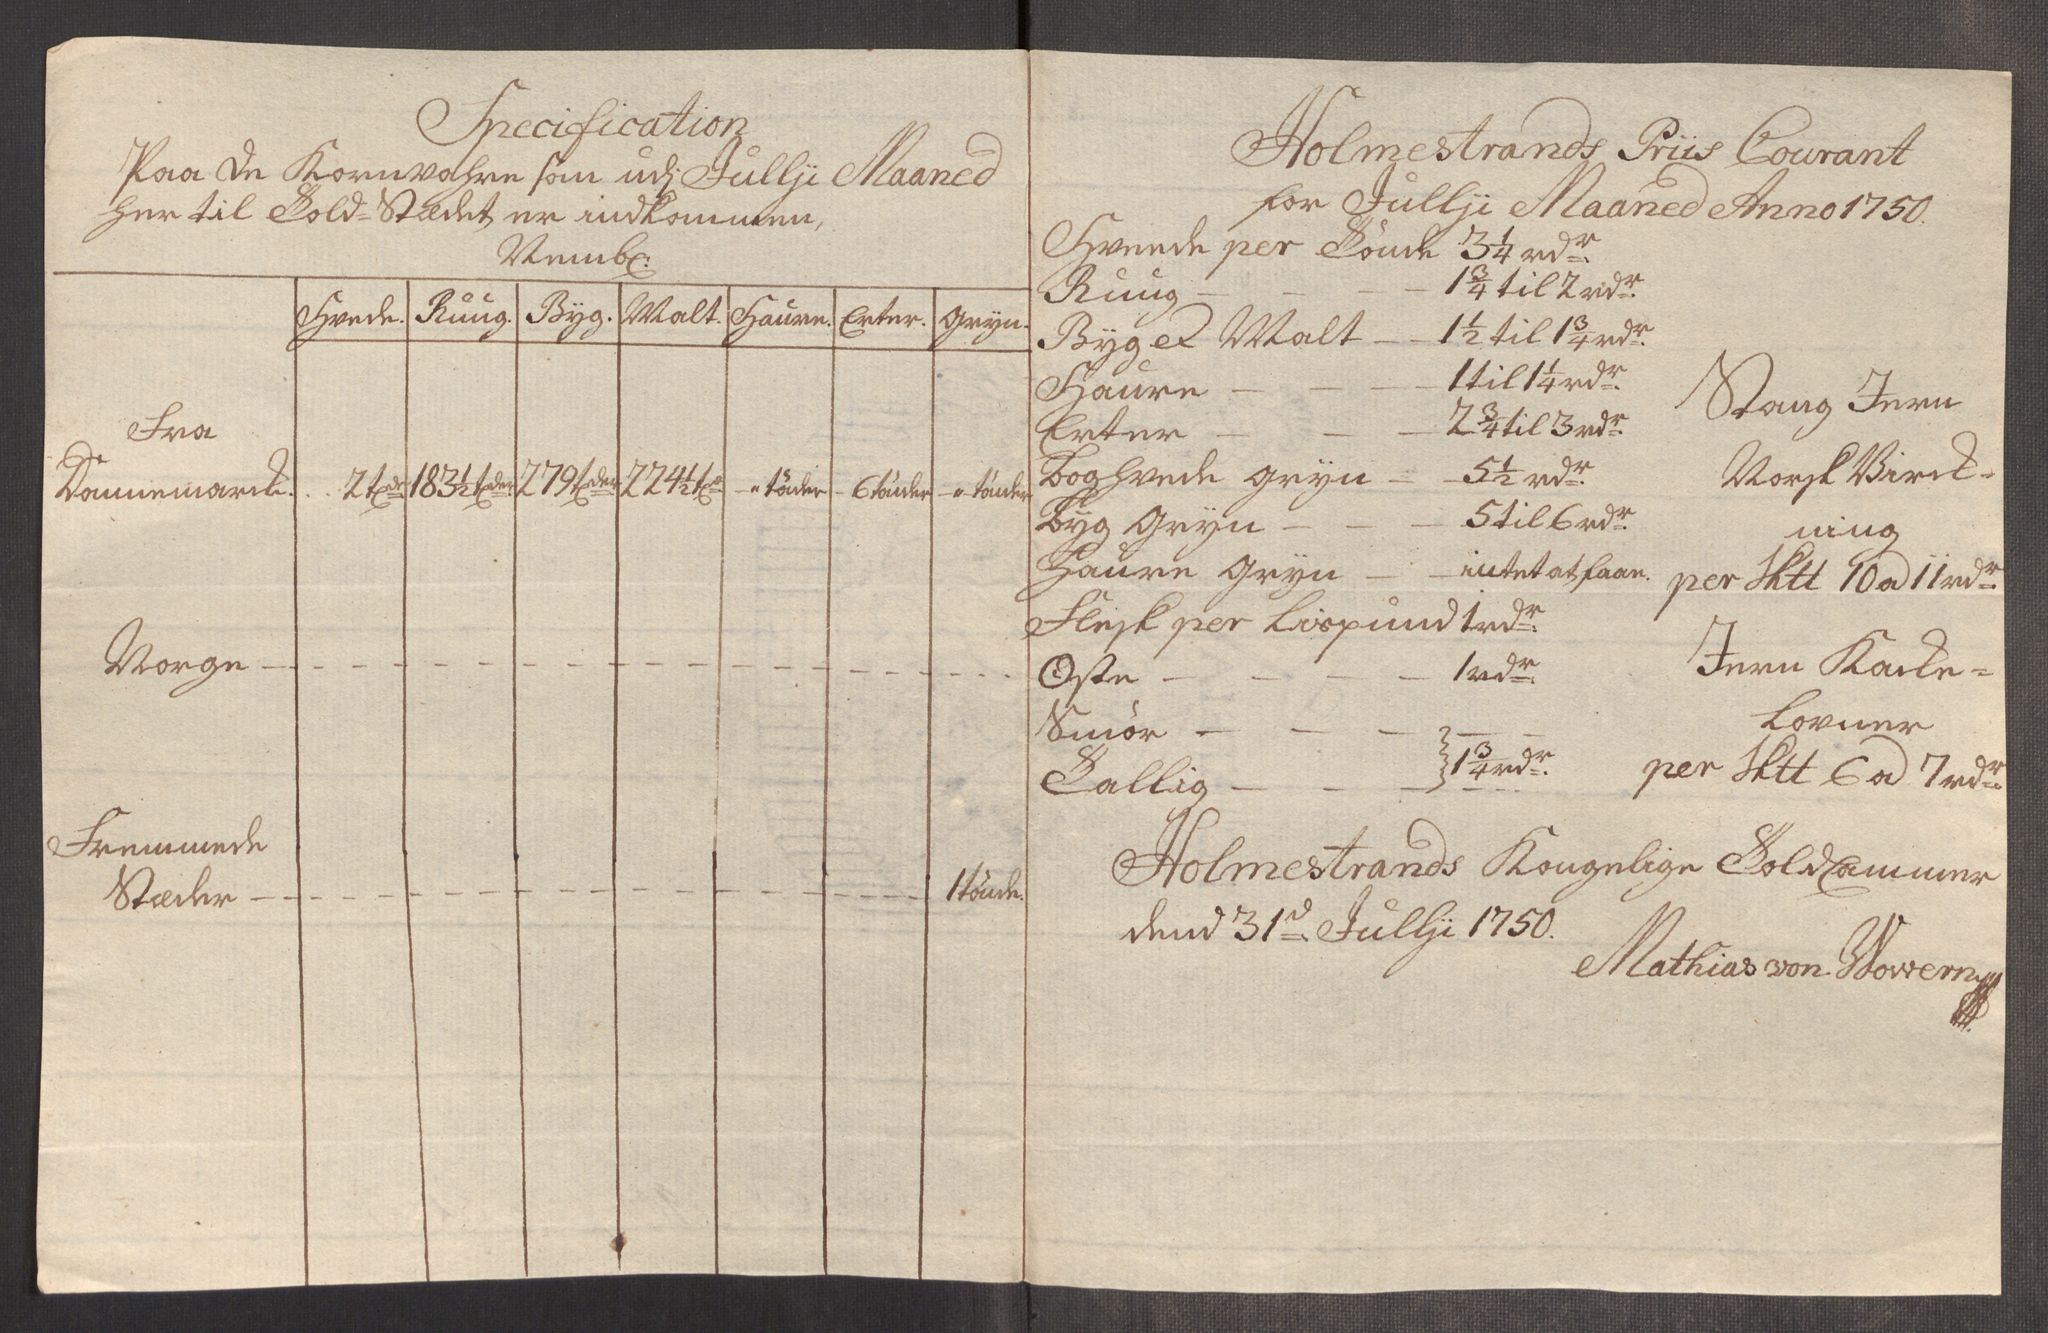 Specification
Paa de Kornvahre som udj Julij Maaned
her til Told-Stædet er indkommen,
Nembl:
Hvede. Ruug. Byg. Malt. Haure. Erter. Gryn.
Fra
Dannemarck. 2 tdr 183½ tdr 279 tdr 224½ tdr " tönder 6 tönder " tönder
Norge
Fremmede
Stæder 1 tönde.
Holmestrands Priis Courant
for Julij Maaned Anno 1750.
Hveede per Tönde 3¼ rdr.
Ruug 1¾ til 2 rdr.
Byg et Malt 1½ til 1¾ rdr.
Haure 1 til 1¼ rdr.
Erter 2¾ til 3 rdr.
Boghvede gryn 5½ rdr.
Byg Gryn 5 til 6 rdr.
Haure Gryn intet at faae.
Flesk per Lispund 1 rdr.
Oste 1 rdr.
Smör
Tallig 1¾ rdr.
Stang Jern
Norsk Virck-
ning
per Sktt 10 a 11 rdr.
Jern Kacke-
lovner
per Sktt 6 a 7 rdr.
Holmestrands Kongelige Told Cammer
dend 31d Julij 1750.
Mathias von Wowern